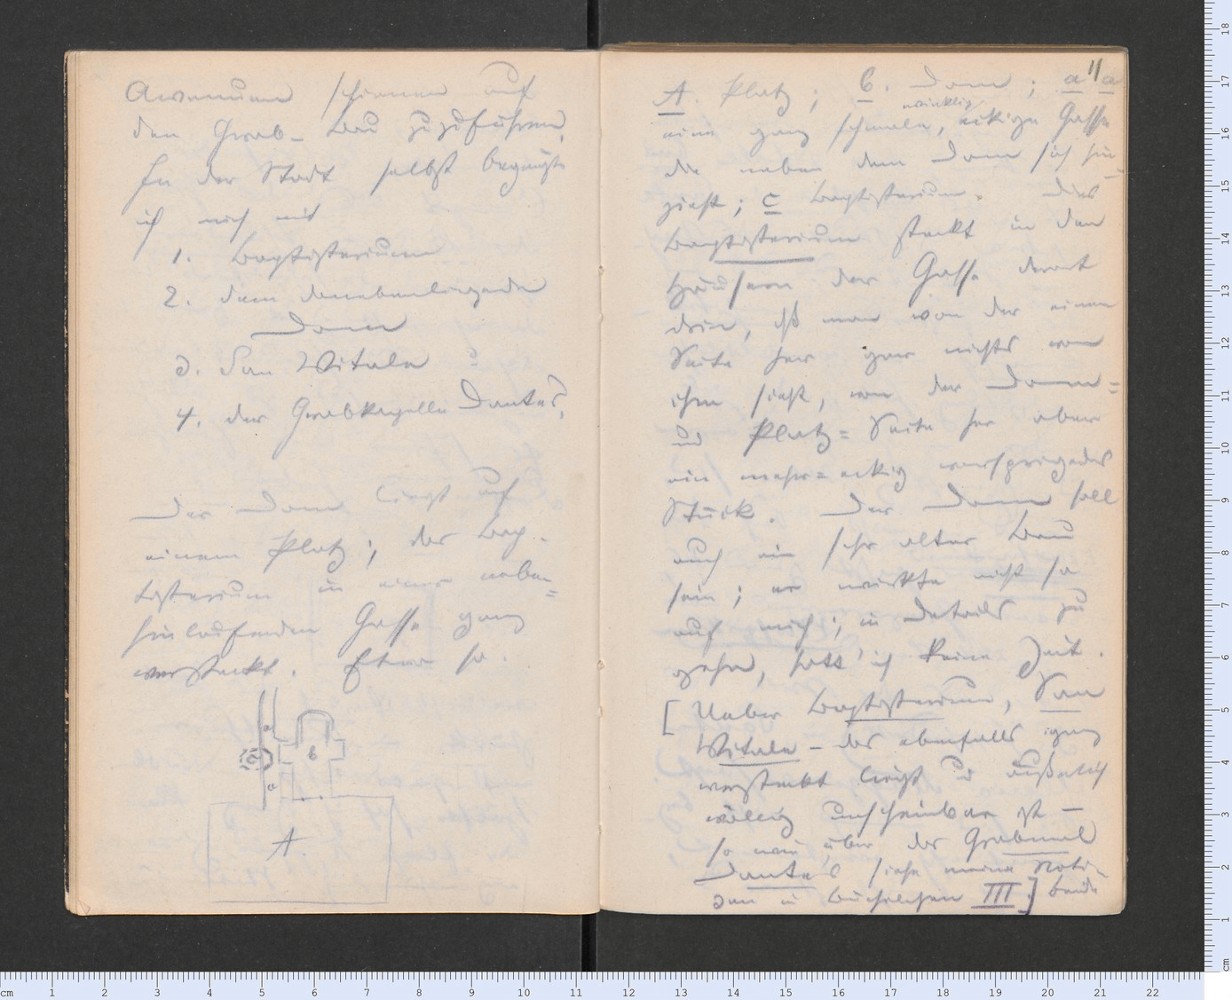 Avenuen schienen auf
den Grab-Bau zuzuführen.
In der Stadt selbst begnügte
ich mich mit
1. Baptisterium
2. dem danebenliegenden
Dom
3. San Vitale u
4. der Grabkapelle Dante's.
Der Dom liegt auf
einem Platz; das Bap-
tisterium in einer neben=
hinlaufenden Gasse ganz
versteckt. Etwa so.
a
b
c
a
A
11
A. Platz; b. Dom; a a
winklig
eine ganz schmale, eckige Gasse
die neben dem Dom sich hin-
zieht; c Baptisterium. Dies
Baptisterium steckt in den
Häusern der Gasse derart
drin, daß man von der einen
Seite her gar nichts von
ihm sieht, von der Dom=
und Platz=Seite her aber
ein mehr=eckig vorspringendes
Stück. Der Dom soll
auch ein sehr alter Bau
sein; er wirkte nicht so
auf mich; in Details zu
gehn, hatt' ich keine Zeit.
[Ueber Baptisterium, San
Vitale – das ebenfalls ganz
versteckt liegt und äußerlich
völlig unscheinbar ist –
so wie über das Grabmal
Dante's siehe meine Noti-
zen in Büchelchen III.] beide